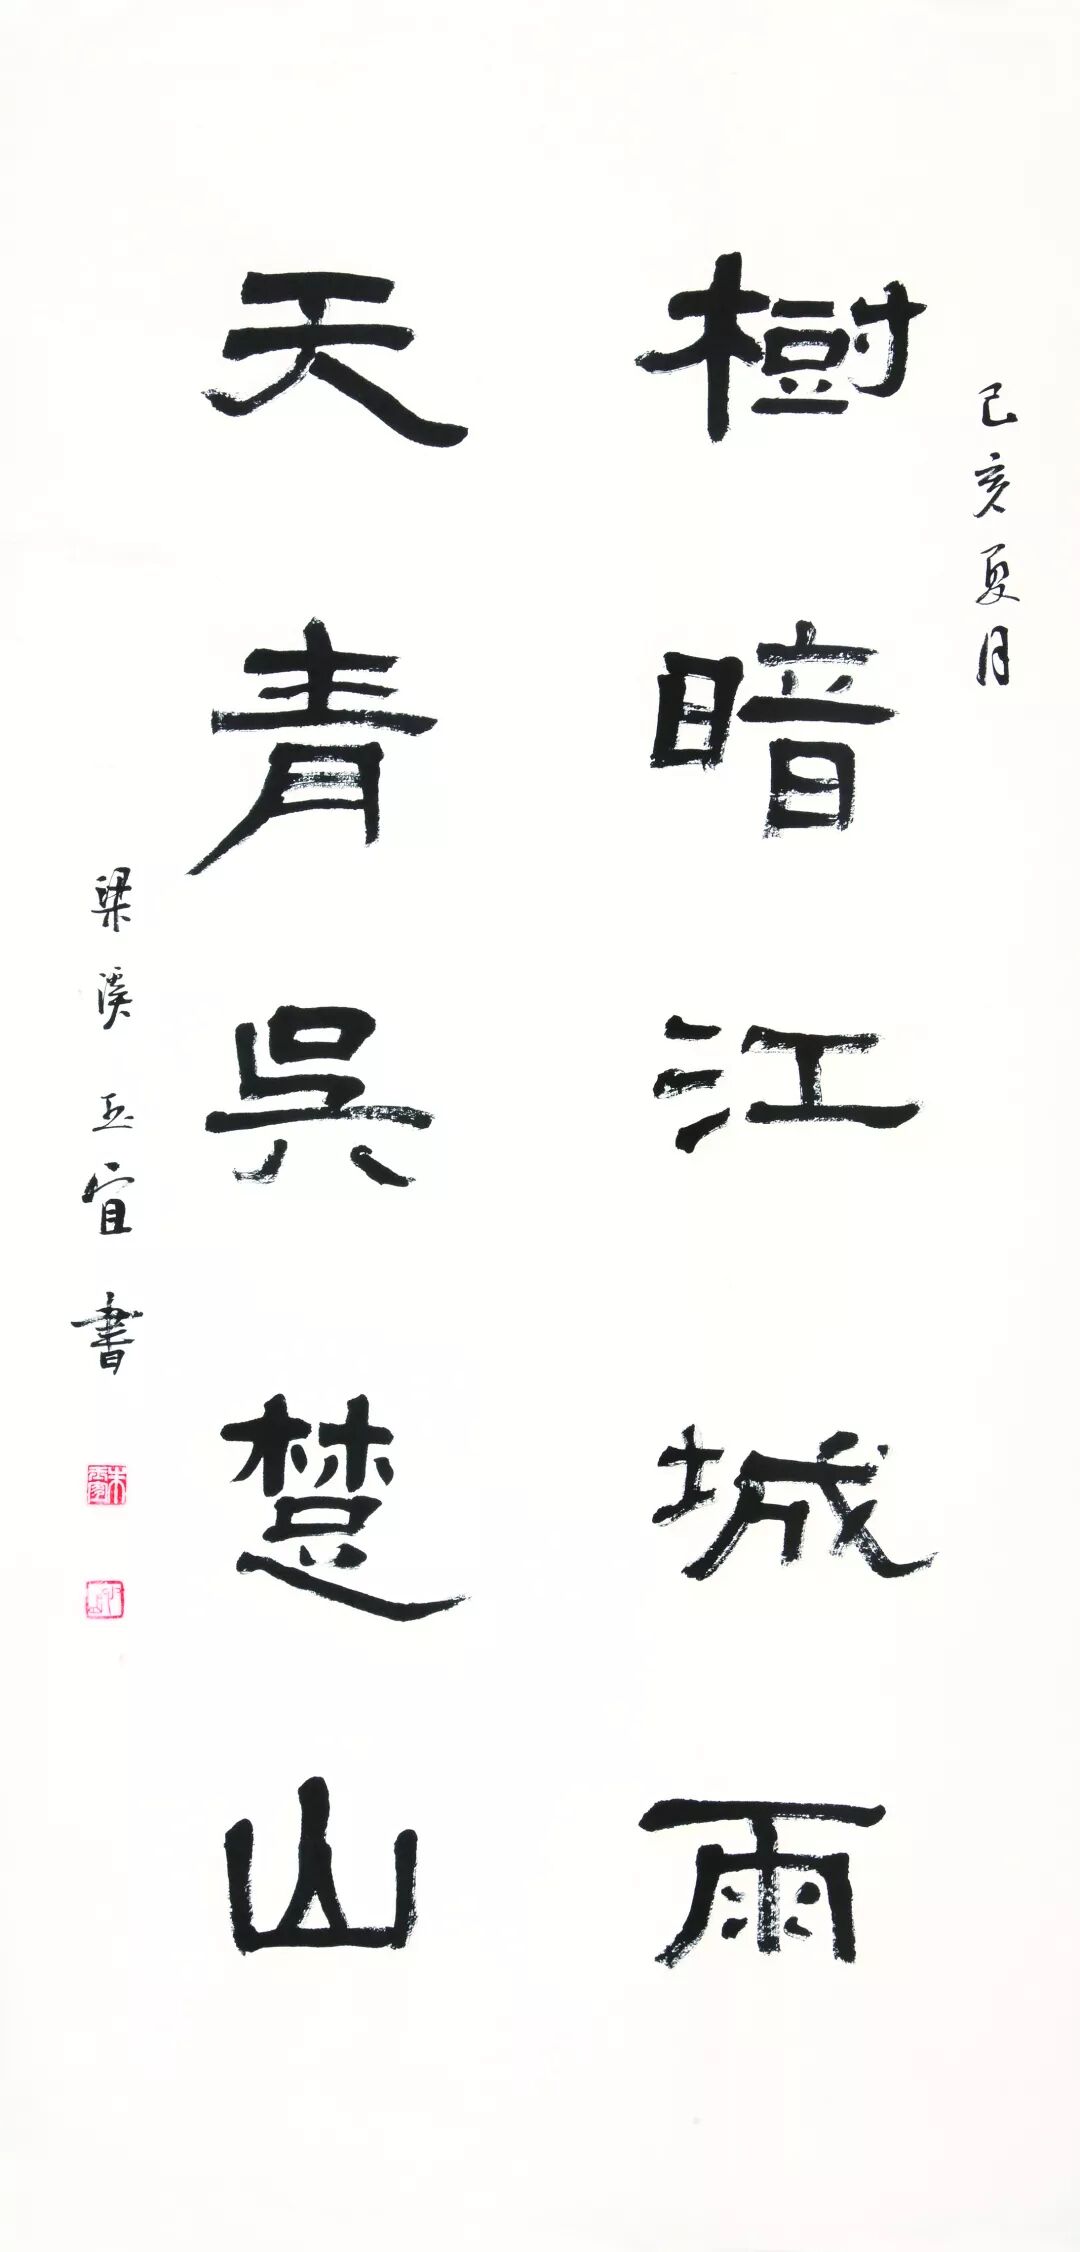 己亥夏月
樹暗江城雨
天青吳楚山
梁溪玉宜書